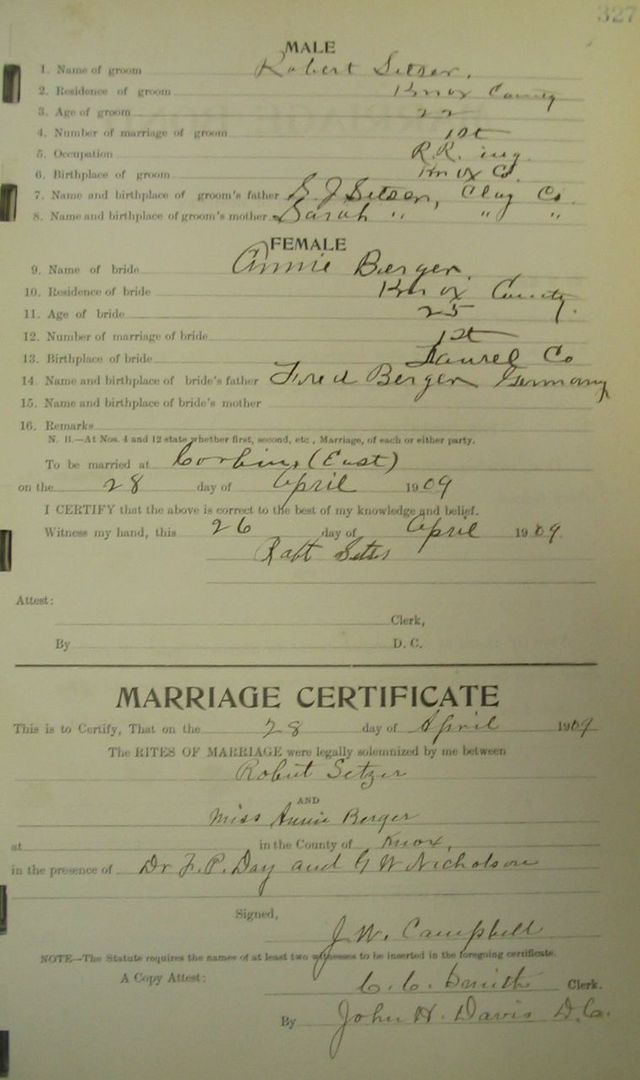 327
MALE
1. Name of groom Robert Setser.
2. Residence of groom Knox County
3. Age of groom 22
4. Number of marriage of groom 1st
5. Occupation R.R. ing.
6. Birthplace of groom Knox Co.
7. Name and birthplace of groom's father S. J Setser, Clay Co.
8. Name and birthplace of groom's mother Sarah " " "
FEMALE
9. Name of bride Annie Berger.
10. Residence of bride Knox County.
11. Age of bride 25
12. Number of marriage of bride 1st
13. Birthplace of bride Laurel Co
14. Name and birthplace of bride's father Fred Berger Germany
15. Name and birthplace of bride's mother
16. Remarks
N. B.—At Nos. 4 and 12 state whether first, second, etc., Marriage, of each or either party.
To be married at Corbin, (East)
on the 28 day of April 1909
I CERTIFY that the above is correct to the best of my knowledge and belief.
Witness my hand, this 26 day of April 1909.
Robt Setser
Attest:
Clerk,
By D. C.
MARRIAGE CERTIFICATE
This is to Certify, That on the 28 day of April 1909
The RITES OF MARRIAGE were legally solemnized by me between
Robert Setzer
AND
Miss Annie Berger
at in the County of Knox,
in the presence of Dr F. P. Day and G W Nicholson
Signed,
J. W. Campbell
NOTE—The Statute requires the names of at least two witnesses to be inserted in the foregoing certificate.
A Copy Attest: C. C. Smith Clerk.
By John H. Davis D.C.